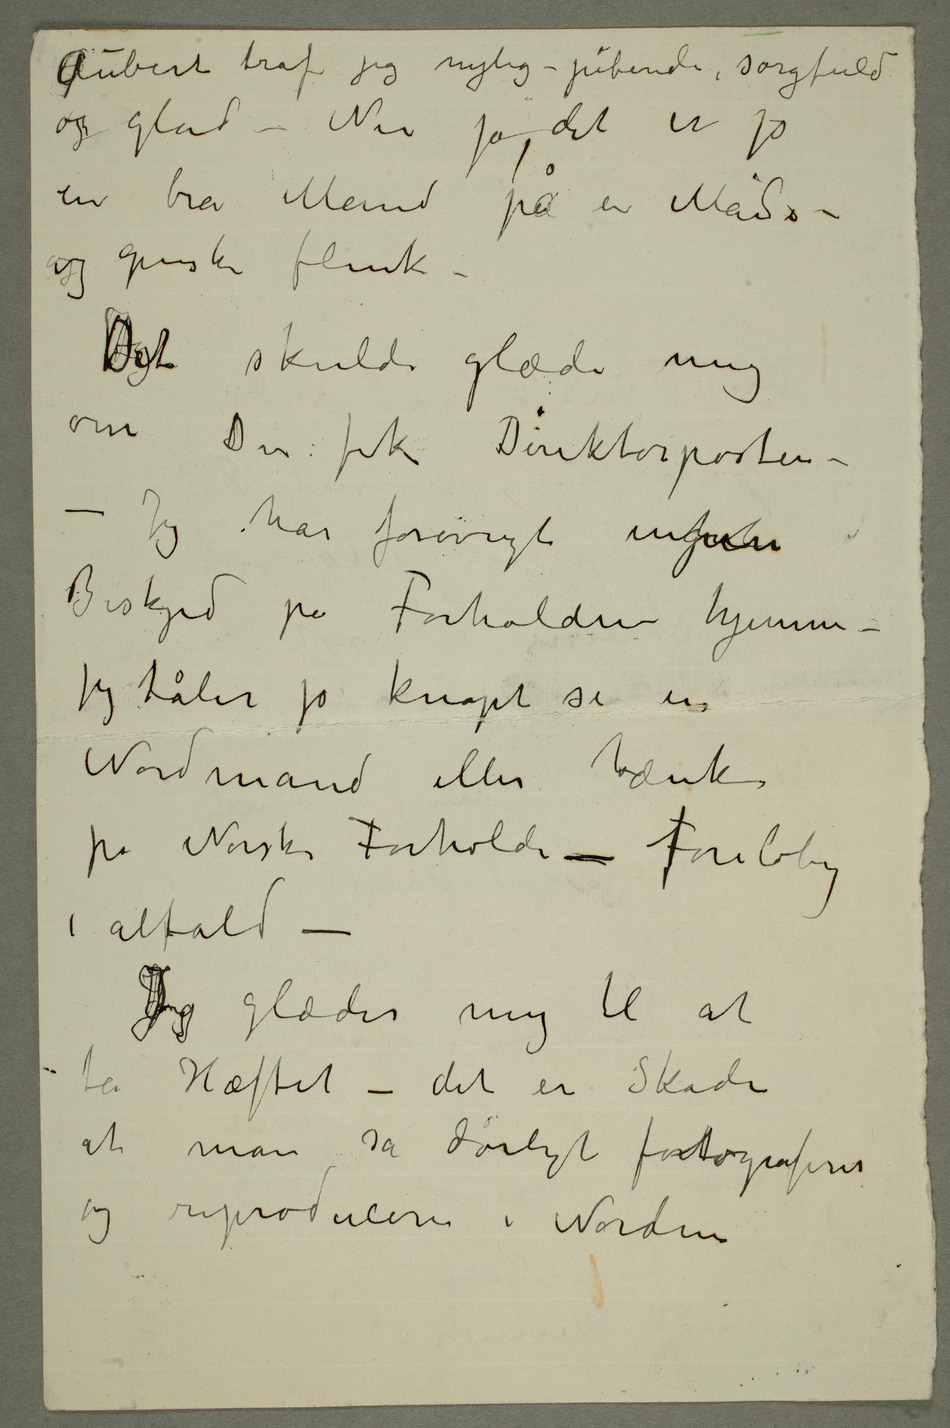 Aubert traf jeg nylig – pibende, sorgfuld
og glad – Nu ja, det er jo
en bra Mand på en Måde –
og ganske flink –
Det skulde glæde mig
om Du fik Direktørposten –
– Jeg har forøvrigt ingen
Beskjed på Forholdene hjemme –
jeg tåler jo knapt se en
Nordmand eller tænke
på Norske Forholde – Foreløbig
i alfald –
Jeg glæder mig til at
få Hæftet – det er Skade
at man så dårligt fotograferer
og reproducerer i Norden